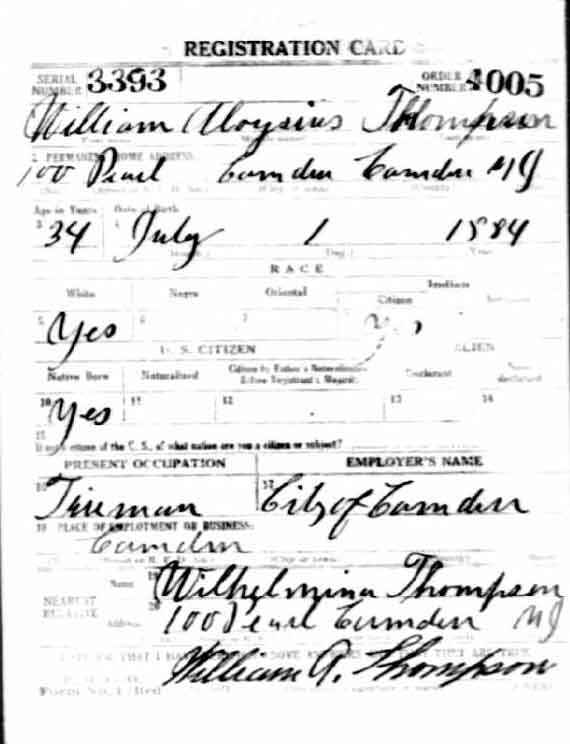 REGISTRATION CARD
SERIAL NUMBER 3393 ORDER NUMBER 4005
William Aloysius Thompson
2 PERMANENT HOME ADDRESS:
100 Pearl Camden Camden NJ
Age in Years Date of Birth
3 34 4 July 1 1884
RACE
White Negro Oriental Indian
Citizen
5 Yes 6 7 Yes
U. S. CITIZEN ALIEN
Native Born Naturalized Citizen by Father's Naturalization Before Registrant's Majority Declarant Non-declarant
10 Yes 11 12 13 14
15
If not a citizen of the U. S., of what nation are you a citizen or subject?
PRESENT OCCUPATION EMPLOYER'S NAME
16 Fireman 17 City of Camden
18 PLACE OF EMPLOYMENT OR BUSINESS:
Camden
NEAREST RELATIVE
Name 19 Wilhelmina Thompson
Address 20 100 Pearl Camden NJ
William A. Thompson